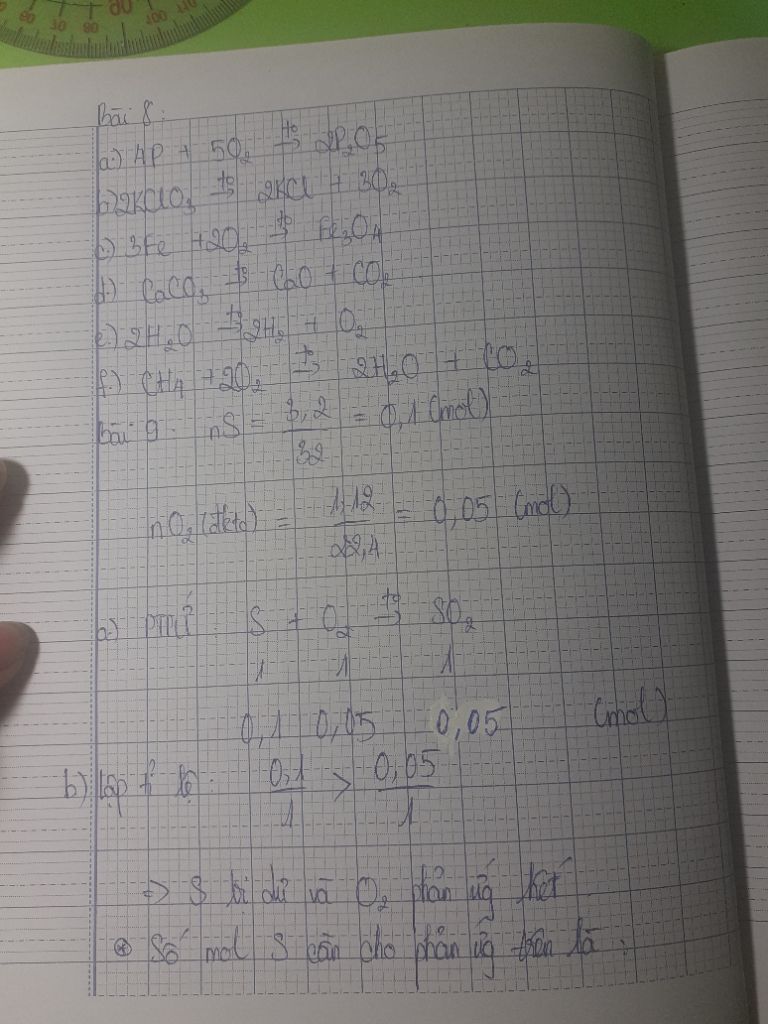 60 70 80 90 100 110
Bài 8:
a) 4P + 5O₂ →t° 2P₂O5
b) 2KClO₃ →t° 2KCl + 3O₂
c) 3Fe + 2O₂ →t° Fe₃O₄
d) CaCO₃ →t° CaO + CO₂
e) 2H₂O →t° 2H₂ + O₂
f) CH₄ + 2O₂ →t° 2H₂O + CO₂
Bài 9: nS = 3,2/32 = 0,1 (mol)
nO₂ (đktc) = 1,12/22,4 = 0,05 (mol)
a) PTPỨ: S + O₂ →t° SO₂
1 1 1
0,1 0,05 0,05 (mol)
b) Lập tỉ lệ: 0,1/1 > 0,05/1
=> S bị dư và O₂ phản ứg hết
⊛ Số mol S cần cho phản ứg trên là: